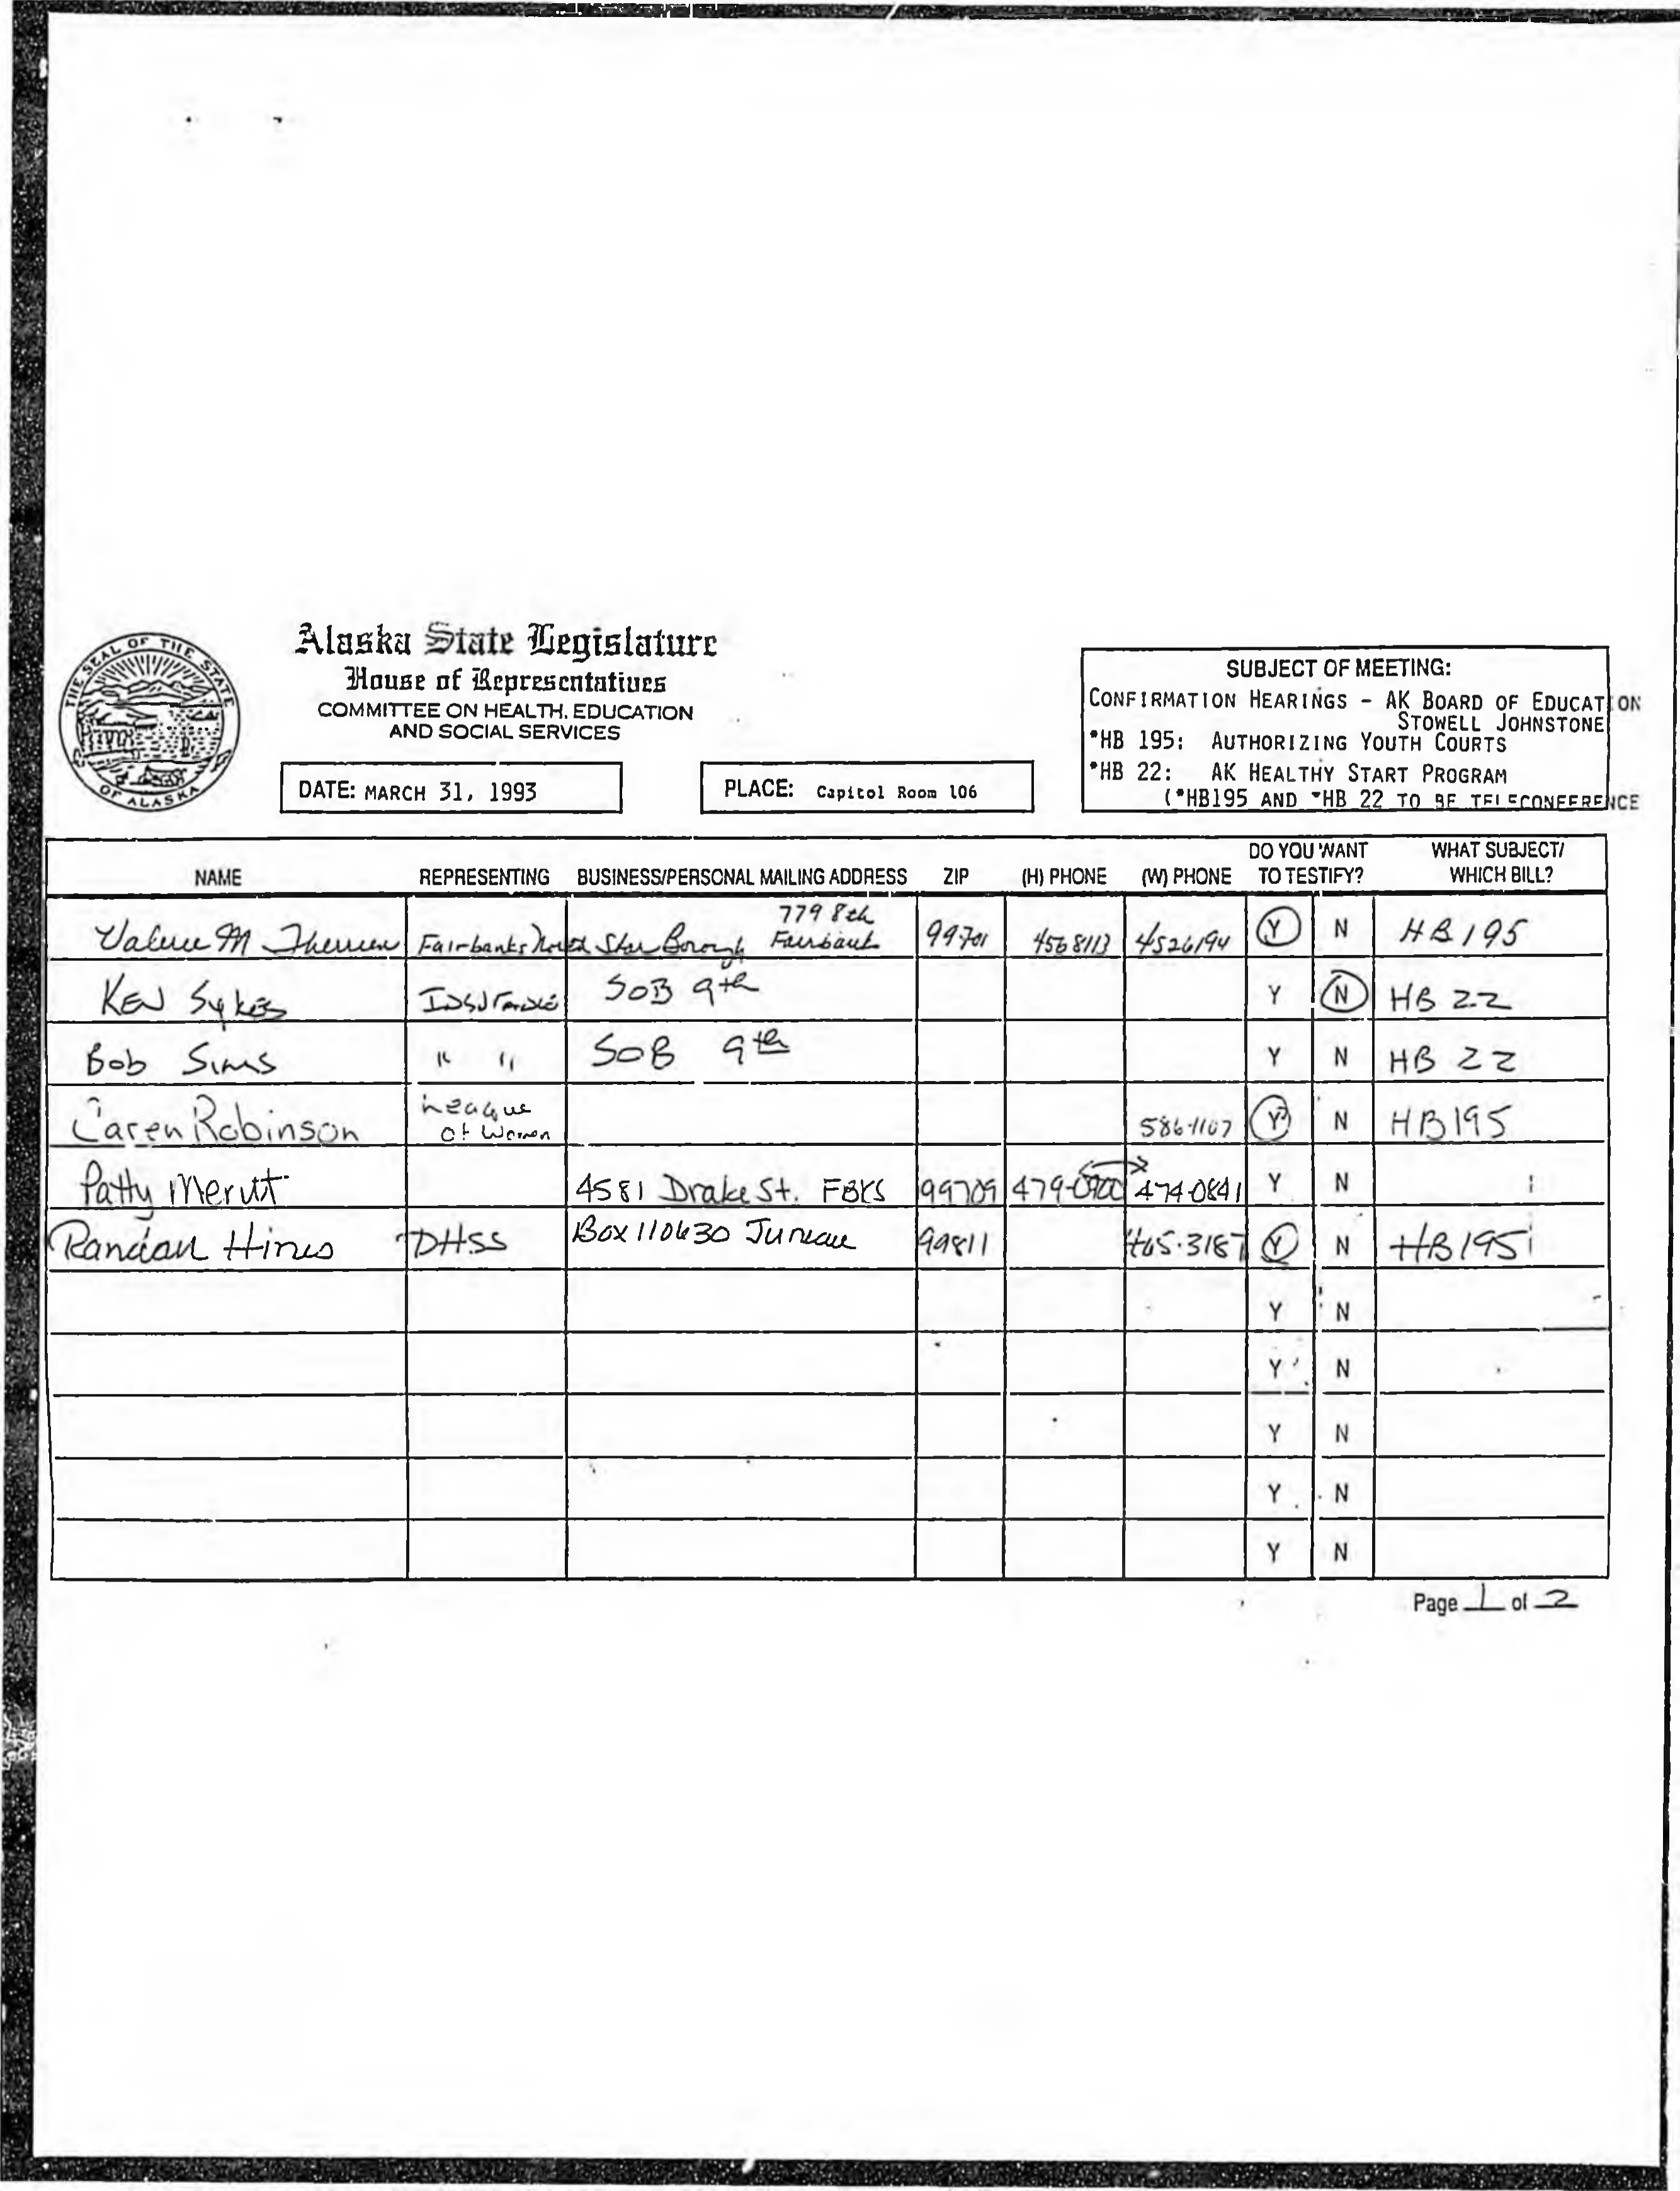 THE SEAL OF THE STATE OF ALASKA
Alaska State Legislature
House of Representatives
COMMITTEE ON HEALTH, EDUCATION
AND SOCIAL SERVICES
DATE: MARCH 31, 1993
PLACE: Capitol Room 106
SUBJECT OF MEETING:
CONFIRMATION HEARINGS - AK BOARD OF EDUCATION
STOWELL JOHNSTONE
*HB 195: AUTHORIZING YOUTH COURTS
*HB 22: AK HEALTHY START PROGRAM
(*HB195 AND *HB 22 TO BE TELECONFERENCE
NAME REPRESENTING BUSINESS/PERSONAL MAILING ADDRESS ZIP (H) PHONE (W) PHONE DO YOU WANT TO TESTIFY? WHAT SUBJECT/ WHICH BILL?
Valerie M Therrien Fairbanks North Star Borough 779 8th Fairbanks 99701 4568113 4526194 Y N HB 195
Ken Sykes Insurance SOB 9th Y N HB 22
Bob Sims " " SOB 9th Y N HB 22
Caren Robinson League of Women 586-1107 Y N HB195
Patty Merutt 4581 Drake St. FBKS 99709 479-0900 474-0841 Y N
Randall Hines DHSS Box 110630 Juneau 99811 465-3187 Y N HB195
Y N
Y N
Y N
Y N
Y N
Page 1 of 2